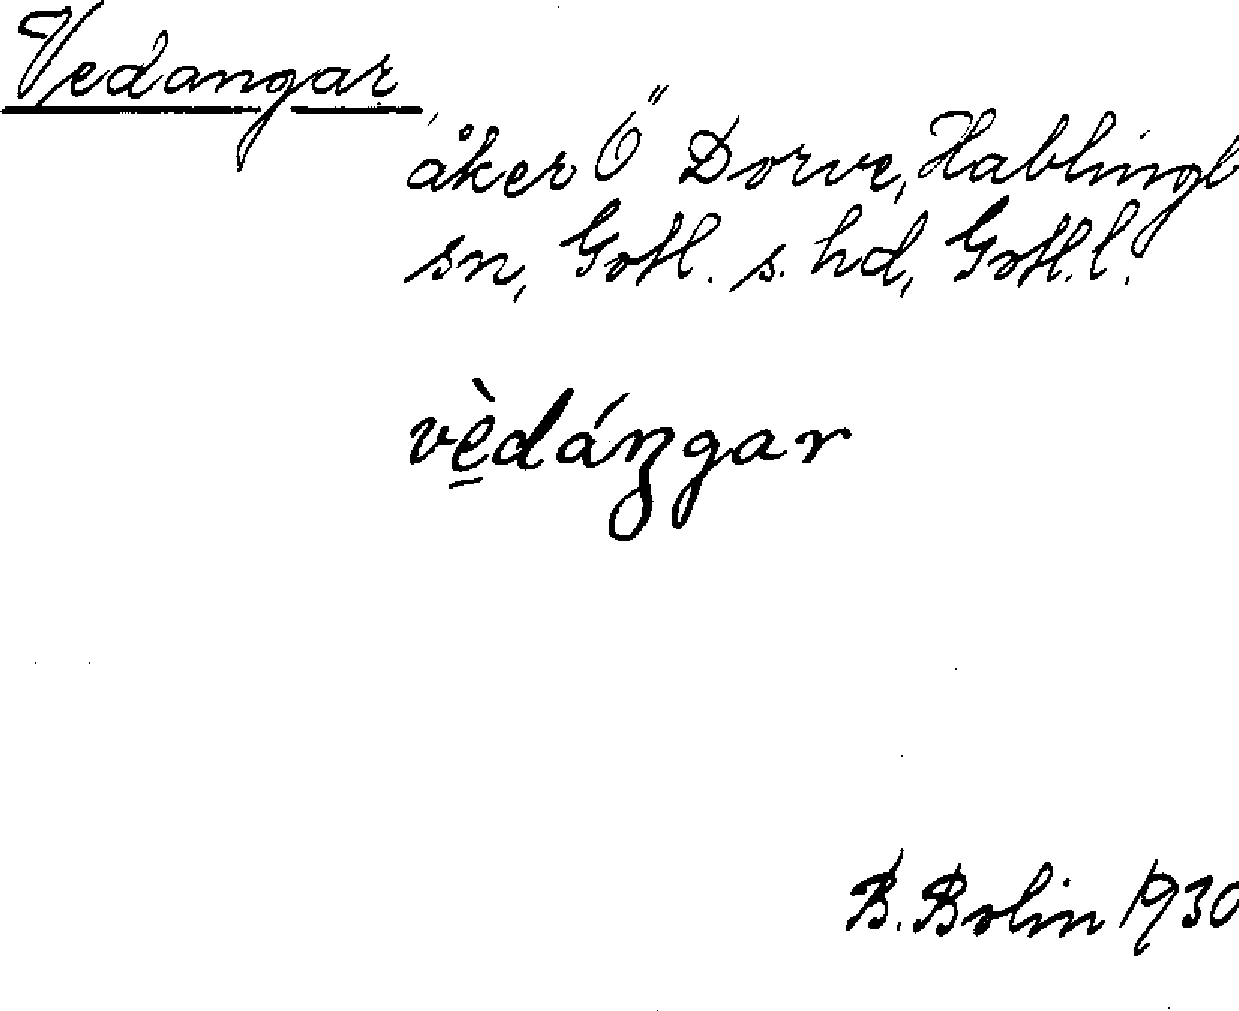 Vedangar,
åker Ö Dorve, Hablingb
sn, Gotl. s. hd, Gotl. l.
vè̱dáŋgar
B. Bolin 1930